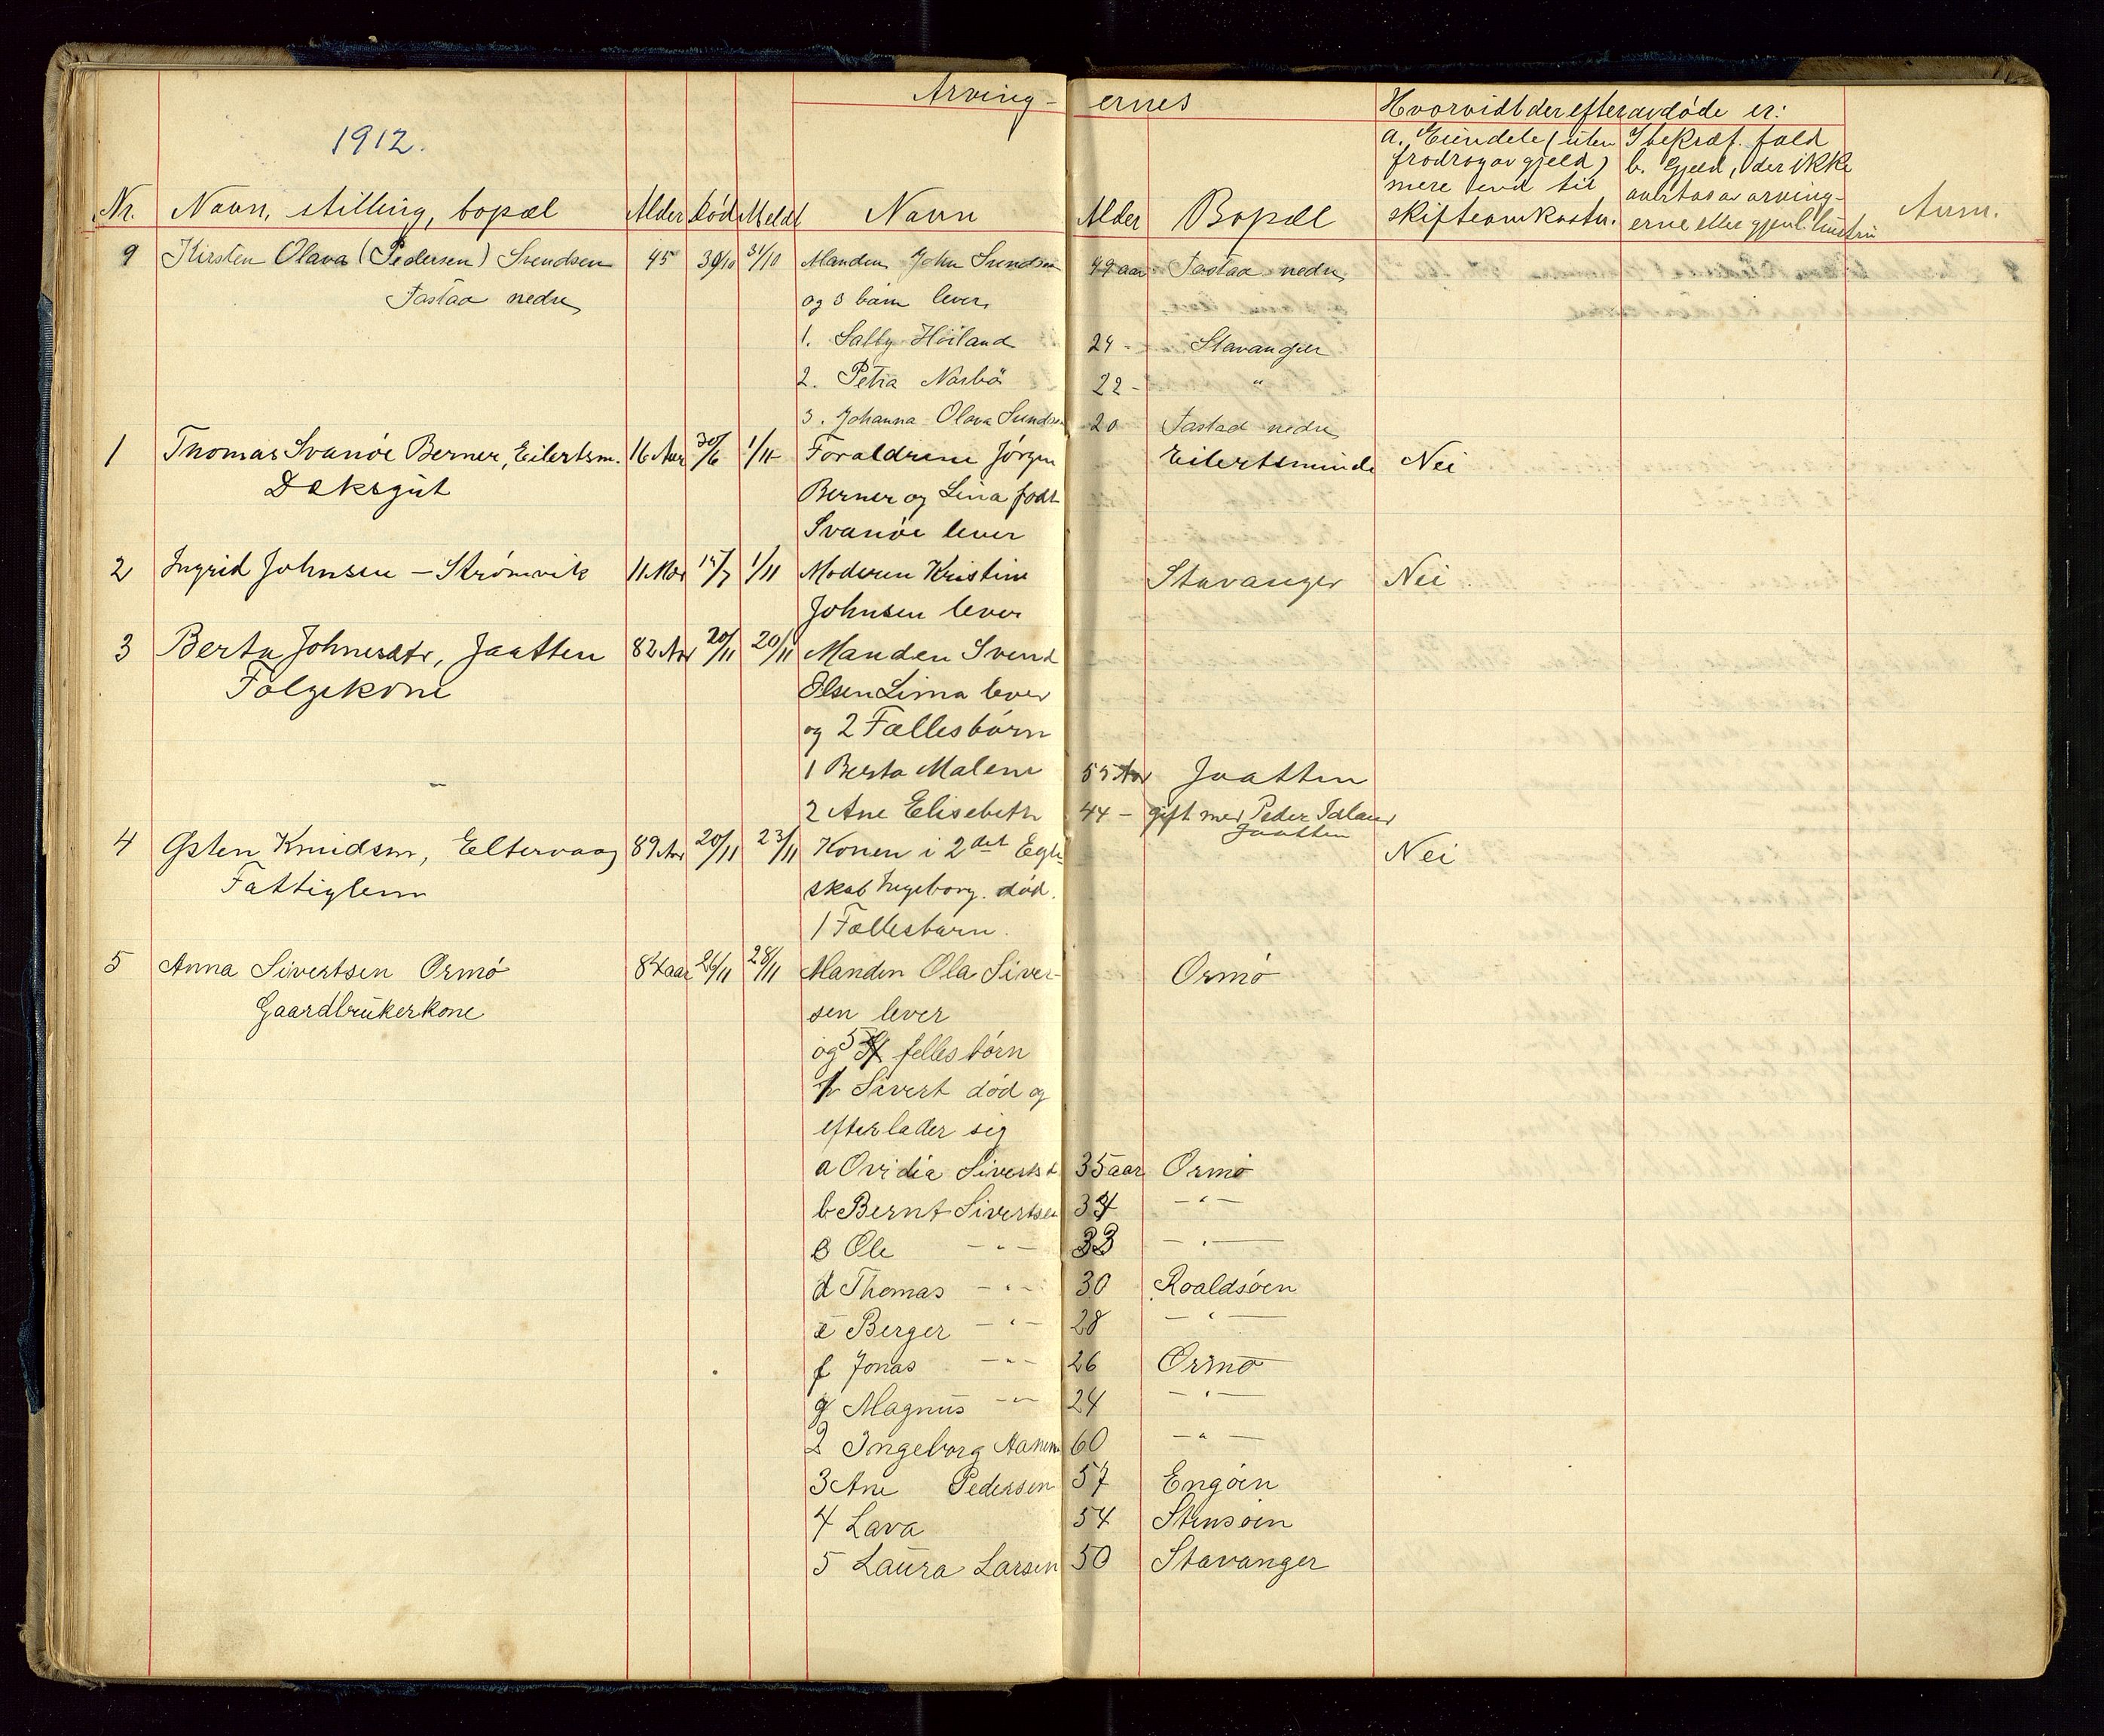 Arving- ernes
Hvorvidt der efter avdøde er:
1912.
a. Eiendele (uten fradrag av gjeld) mere end til skifteomkostn.
I bekræf. fald b. Gjeld, der ikke overtas av arving- erne eller gjenl.
Nr. Navn, stilling, bopæl Alder Død Meldt Navn Alder Bopæl Anm.
9 Kirsten Olava (Pedersen) Svendsen 45 30/10 31/10 Manden John Svendsen 49 aar Tastaa nedre
Tastaa nedre og 3 barn lever
1. Salby Höiland 24 - Stavanger
2. Petra Nærbö 22 - "
3. Johanna Olava Svendsen 20 Tastad nedre
1 Thomas Svanöe Berner, Eilertsm. 16 Aar 30/6 1/11 Forældrene Jörgen Eilertsminde Nei
Dæksgut Berner og Lina født
Svanöe lever
2 Ingrid Johnsen - Strømvik 11 Mdr 15/7 1/11 Moderen Kristine Stavanger Nei
Johnsen lever
3 Berta Johnesdtr, Jaatten 82 Aar 20/11 20/11 Manden Svend
Følgekone Olsen Lima lever
og 2 Fællesbörn
1 Berta Malene 55 Aar Jaatten
2 Ane Elisebeth 44 - gift med Peder Idland
Jaatten
4 Østen Knudsen, Eltervaag 89 Aar 20/11 23/11 Konen i 2det Egte- Nei
Fattiglem skab Ingeborg. død.
1 Fællesbarn.
5 Anna Sivertsen Ormø 84 aar 26/11 28/11 Manden Ola Siver- Ormø
Gaardbrukerkone sen lever
og 5 felles börn
1 Sivert död og
efterlader sig
a Ovidia Sivertsd 35 aar Ormø
b Bernt Sivertsen 34 -"-
c Ole -"- 33 -"-
d Thomas -"- 30 Roaldsøen
e Berger -"- 28 -"-
f Jonas -"- 26 Ormø
g Magnus -"- 24 -"-
2 Ingeborg Aanen 60 -"-
3 Ane Pedersen 57 Engøen
4 Lava 54 Stensøen
5 Laura Larsen 50 Stavanger